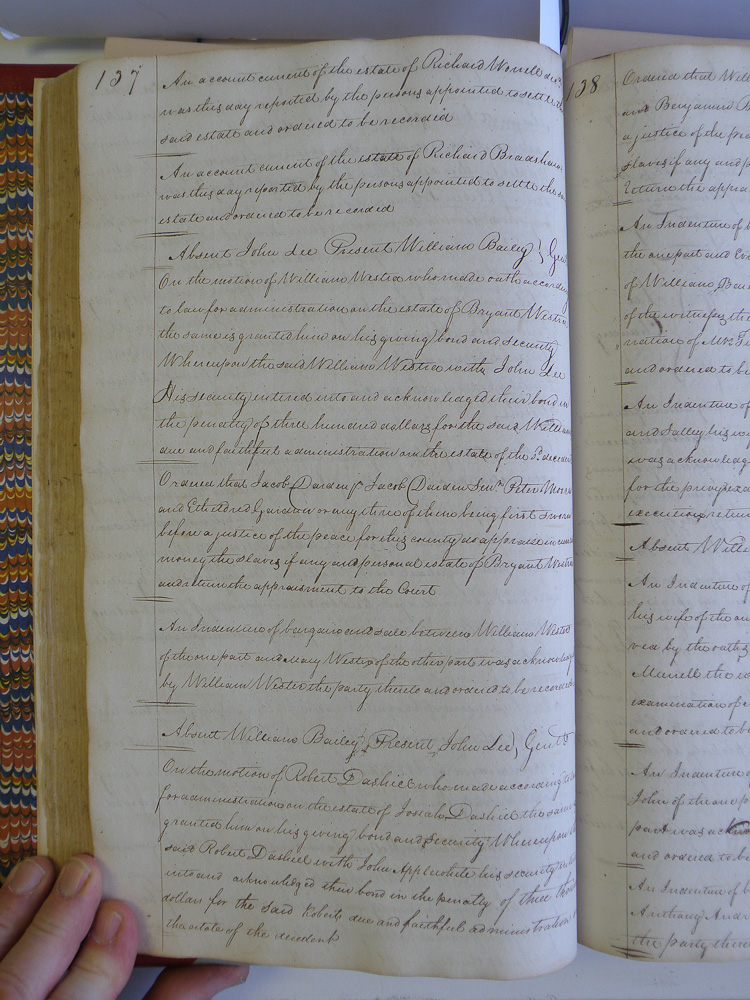 137
An account current of the estate of Richard Worrell dec.d
was this day reported by the persons appointed to settle the
said estate and ordered to be recorded
An account current of the estate of Richard Bradshaw
was this day reported by the persons appointed to settle the
estate and ordered to be recorded
Absent John Lee Present William Bailey Gen
On the motion of William Westra who made oath according
to law for administration on the estate of Bryant Westra
the same is granted him on his giving bond and security
Whereupon the said William Westra with John Lee
His security entered into and acknowledged their bond in
the penalty of three hundred dollars for the said William
due and faithful administration on the estate of the sd. deceden
Ordered that Jacob Darden jr. Jacob Darden Senr. Peter
and Etheldred or any three of them being first sworn
before a justice of the peace for this county do appraise in
money the slaves if any and personal estate of Bryant Westra
and return the appraisment to the Court
An Indenture of bargain and sale between William Westra
of the one part and Mary Westra of the other part was acknowledg
by William Westra the party thereto and ordered to be recorded
Absent William Bailey, Present John Lee, Gent
On the motion of Robert Dashiel who made according to
for administration on the estate of Josiah Dashiel the same
granted him on his giving bond and security Whereupon
said Robert Dashiel with John Applewhite his security
into and acknowledged their bond in the penalty of three thou
dollars for the said Roberts due and faithful administration
the estate of the decedent
138
Ordered that Will
and Benjamin
a justice of the pea
slaves if any and p
return the appra
An Indenture of b
the one part and
of William Bai
of the witnesses the
and ordered to be
An Indenture of
and Salley his w
was acknowledg
for the
execution return
Absent Willi
An Indenture of
his wife of the on
ved by the oaths
Murrell the
examination of
and ordered to be
An Indenture
John of the one p
part was ackno
and ordered to be
An Indenture of b
Anthony Andr
the party thereto